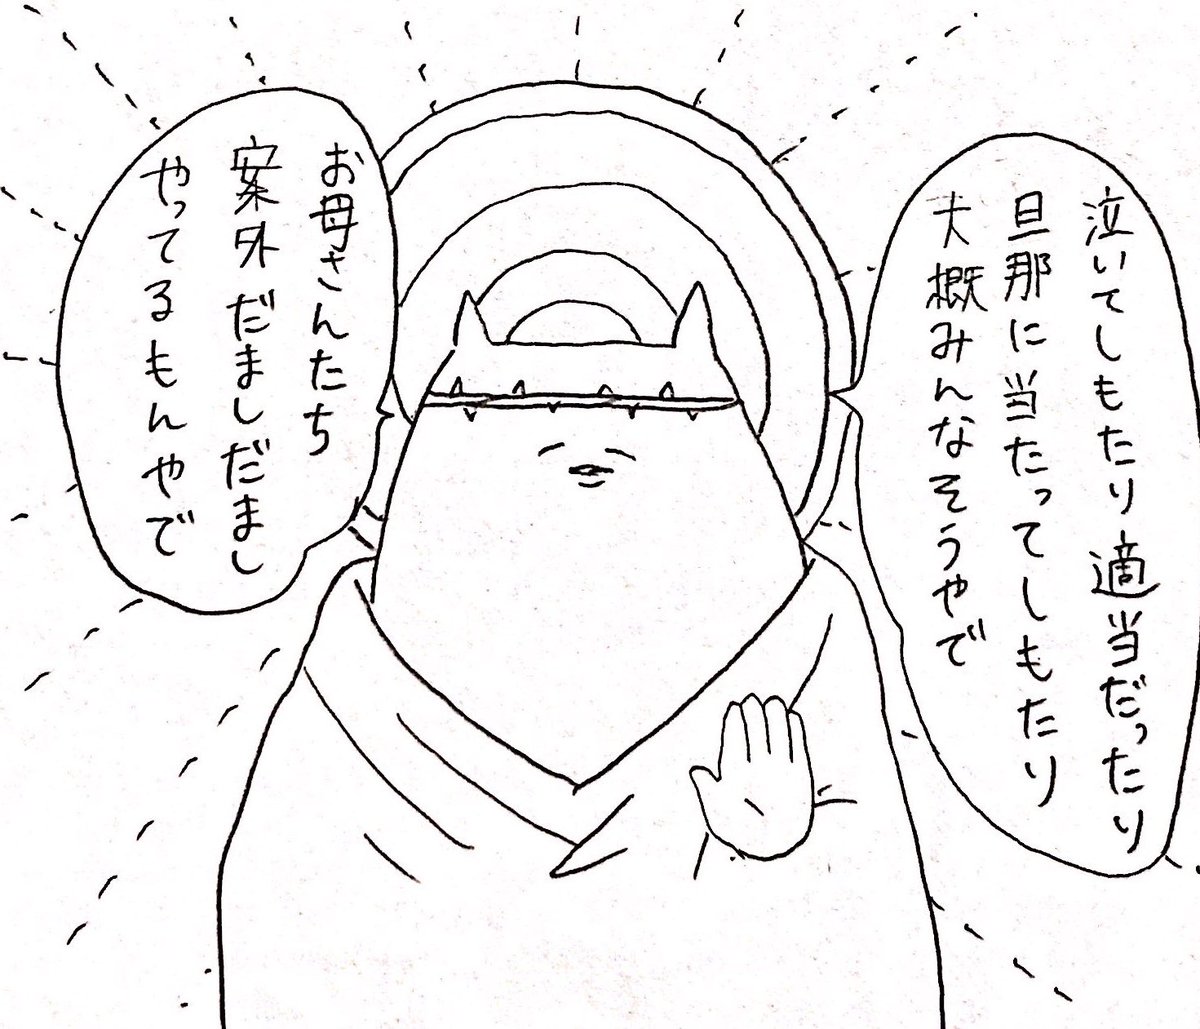 泣いてしもたり適当だったり
旦那に当たってしもたり
大概みんなそうやで
お母さんたち
案外だましだまし
やってるもんやで